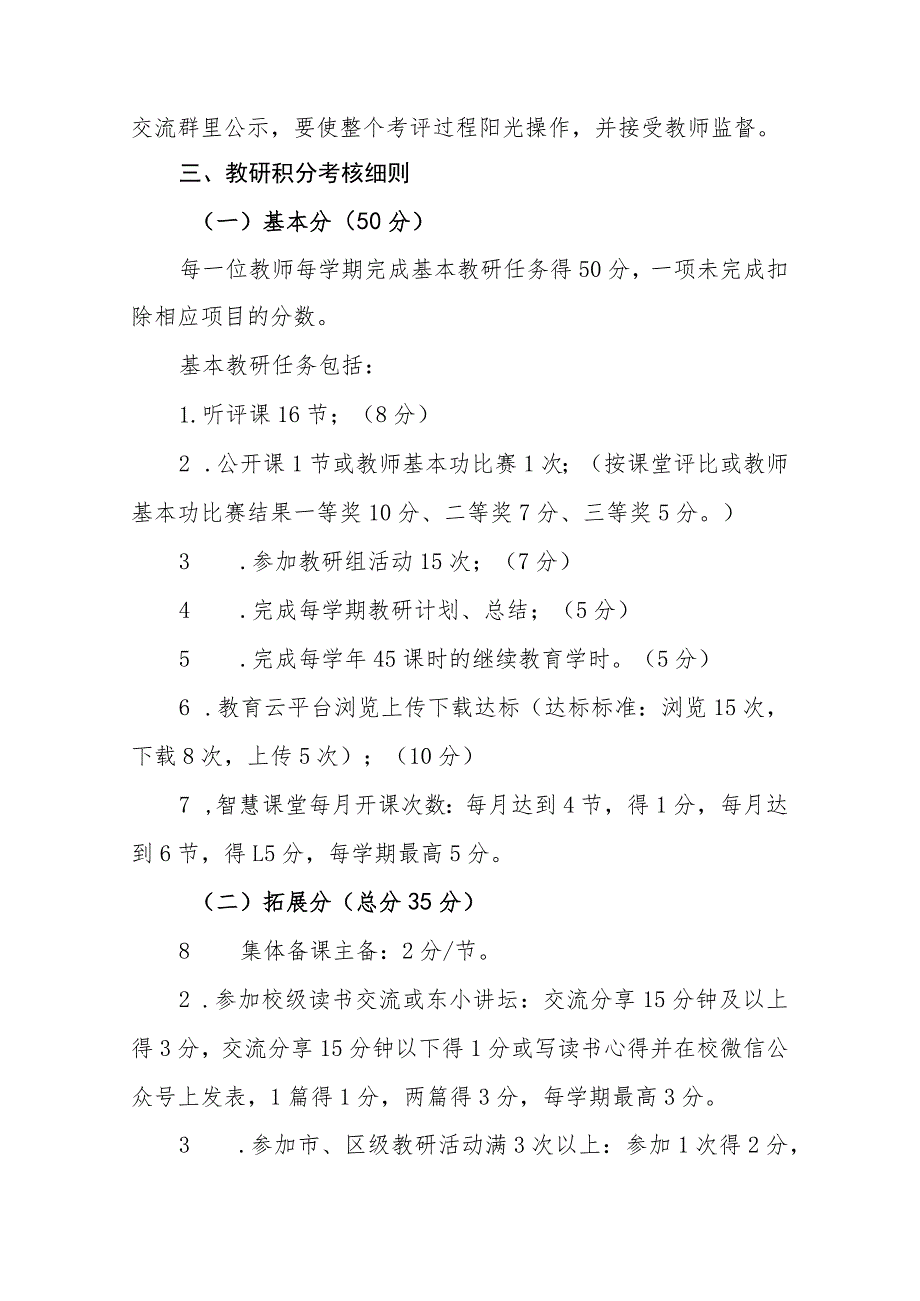 交流群里公示，要使整个考评过程阳光操作，并接受教师监督。
三、教研积分考核细则
（一）基本分（50分）
每一位教师每学期完成基本教研任务得50分，一项未完成扣
除相应项目的分数。
基本教研任务包括：
1.听评课16节；（8分）
2 .公开课1节或教师基本功比赛1次；（按课堂评比或教师
基本功比赛结果一等奖10分、二等奖7分、三等奖5分。）
3 .参加教研组活动15次；（7分）
4 .完成每学期教研计划、总结；（5分）
5 .完成每学年45课时的继续教育学时。（5分）
6 .教育云平台浏览上传下载达标（达标标准：浏览15次，
下载8次，上传5次）；（10分）
7 ,智慧课堂每月开课次数：每月达到4节，得1分，每月达
到6节，得L5分，每学期最高5分。
（二）拓展分（总分35分）
8 集体备课主备：2分/节。
2 .参加校级读书交流或东小讲坛：交流分享15分钟及以上
得3分，交流分享15分钟以下得1分或写读书心得并在校微信公
众号上发表，1篇得1分，两篇得3分，每学期最高3分。
3 .参加市、区级教研活动满3次以上：参加1次得2分，